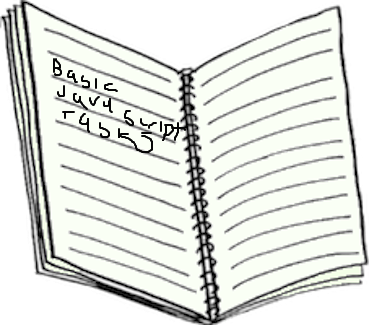 Basic
Java Script
Tasks